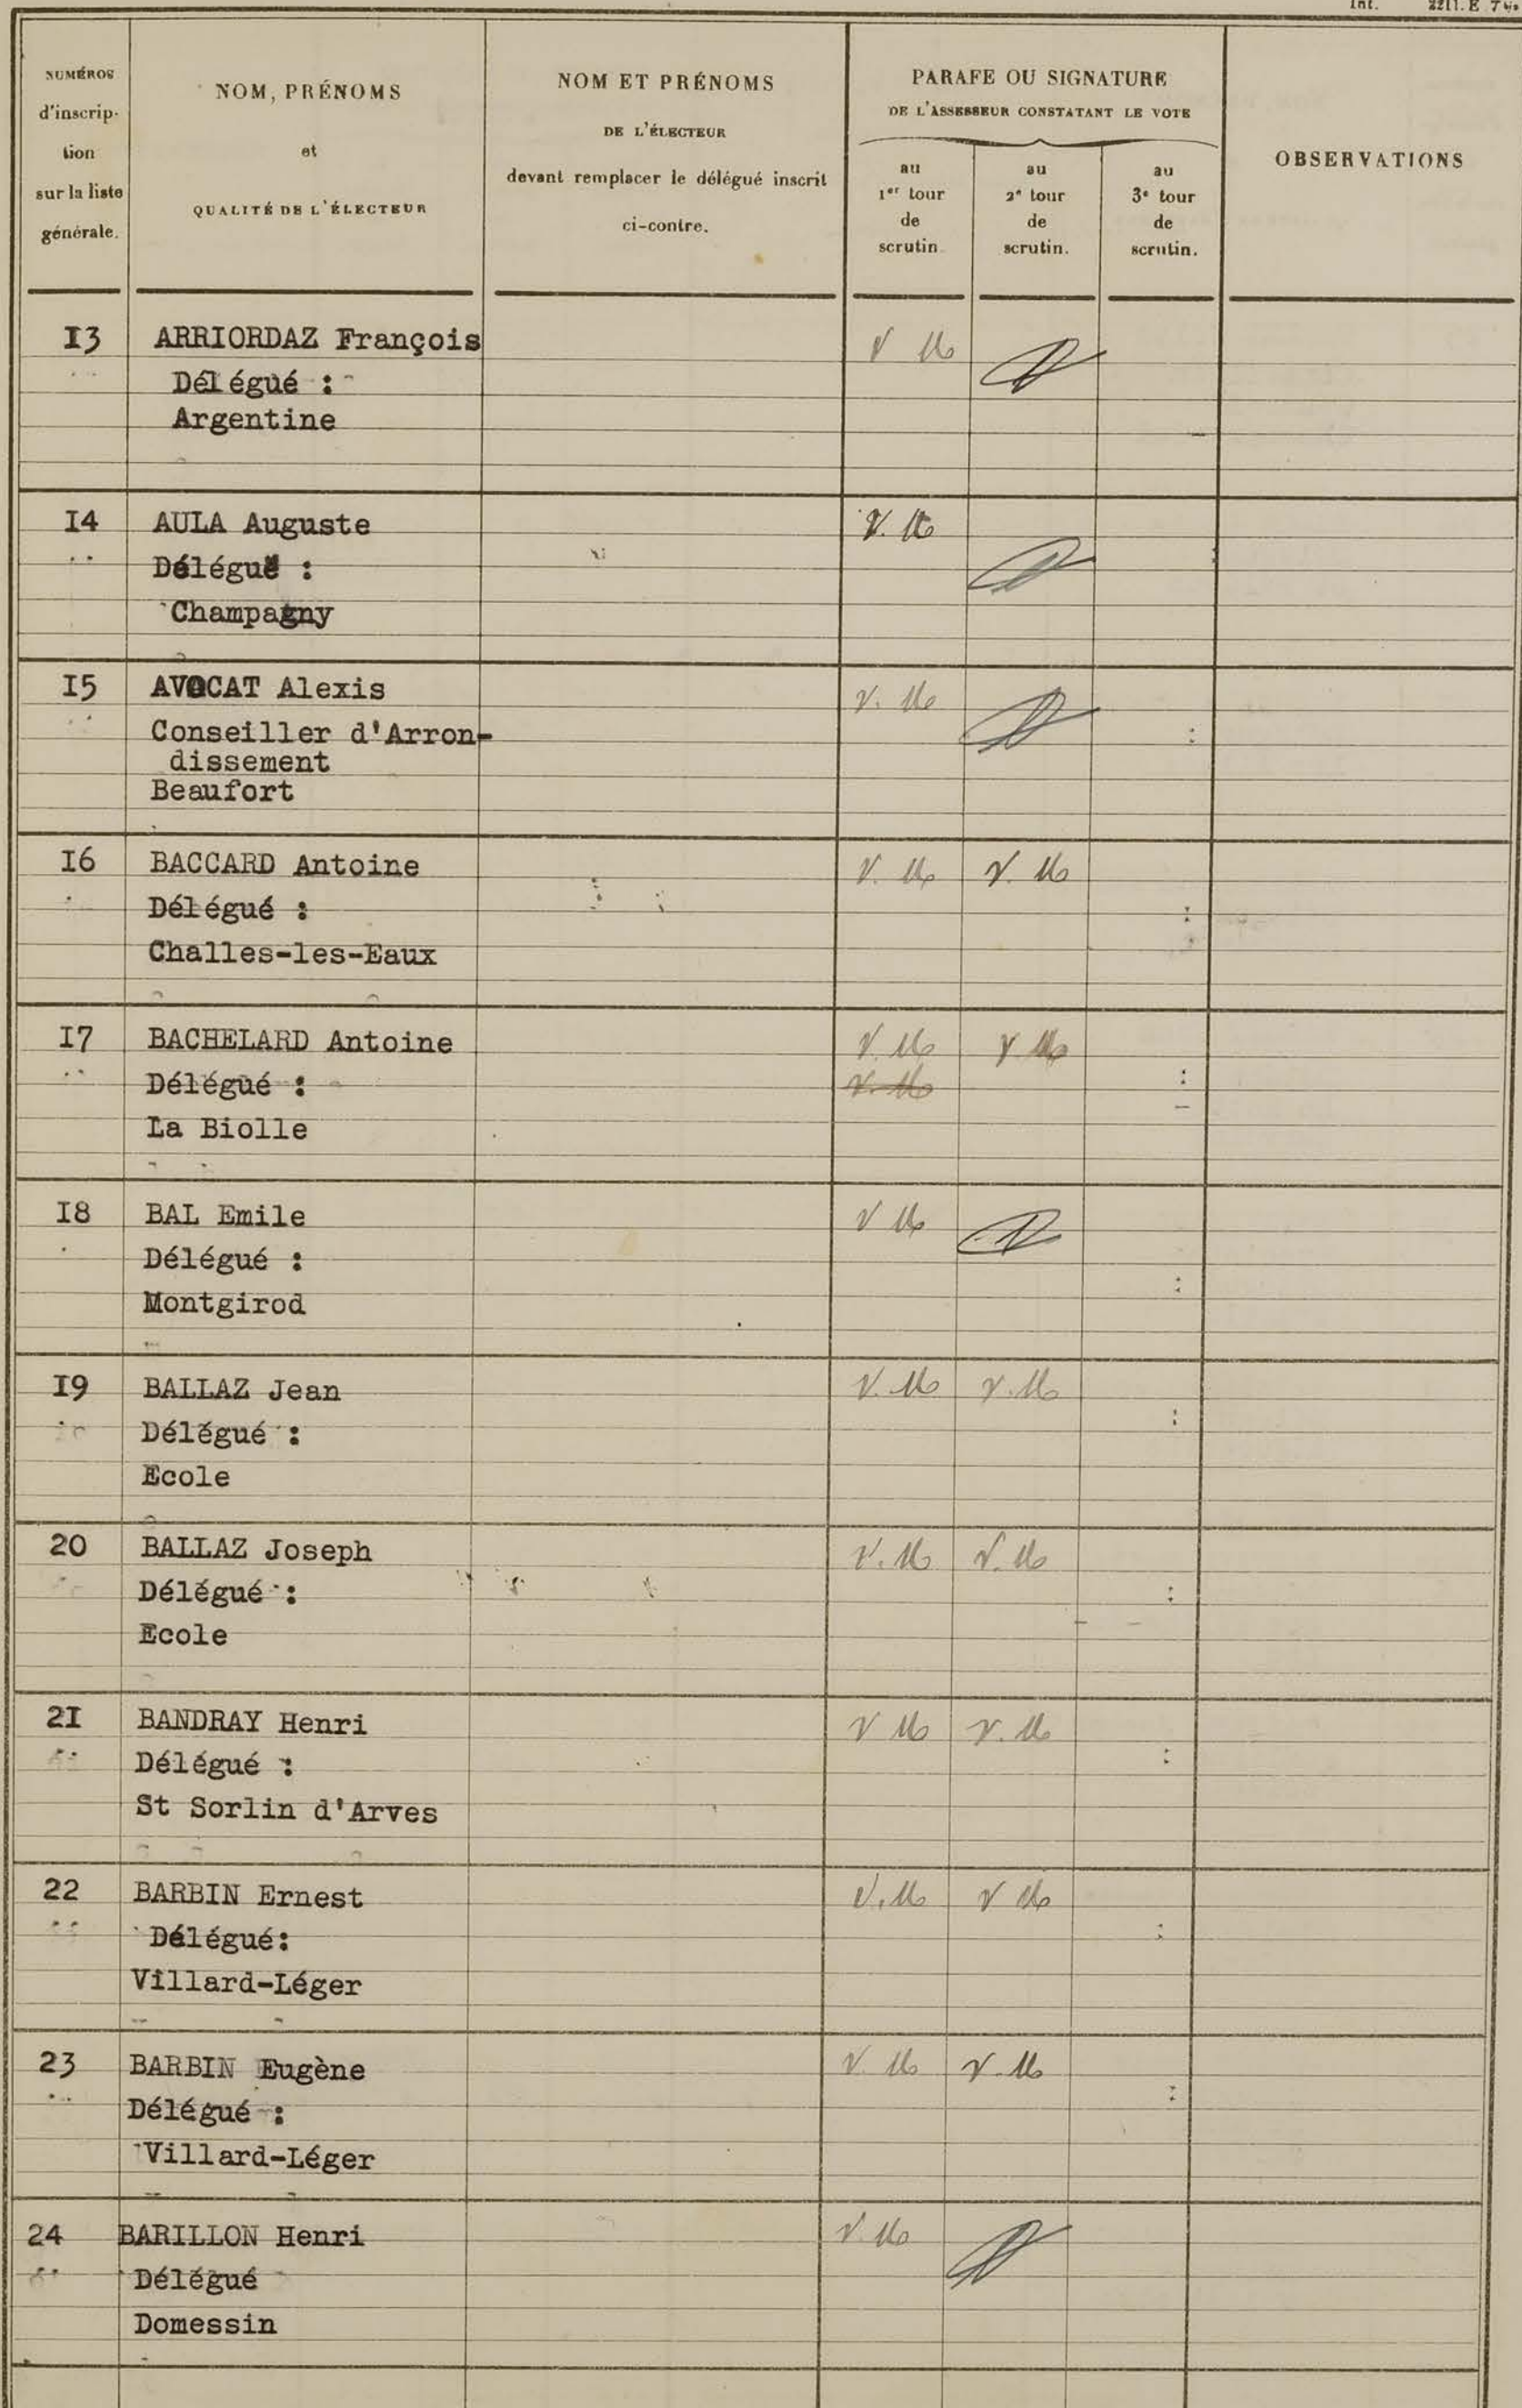 Int. 2211. E. 7 bis
NUMÉROS
d'inscrip-
tion
sur la liste
générale.
NOM, PRÉNOMS
et
QUALITÉ DE L'ÉLECTEUR
NOM ET PRÉNOMS
DE L'ÉLECTEUR
devant remplacer le délégué inscrit
ci-contre.
PARAFE OU SIGNATURE
DE L'ASSESSEUR CONSTATANT LE VOTE
au
1er tour
de
scrutin
au
2e tour
de
scrutin.
au
3e tour
de
scrutin.
OBSERVATIONS
I3 ARRIORDAZ François
Délégué :
Argentine
I4 AULA Auguste
Délégué :
Champagny
I5 AVOCAT Alexis
Conseiller d'Arron-
dissement
Beaufort
I6 BACCARD Antoine
Délégué :
Challes-les-Eaux
I7 BACHELARD Antoine
Délégué :
La Biolle
I8 BAL Emile
Délégué :
Montgirod
I9 BALLAZ Jean
Délégué :
Ecole
20 BALLAZ Joseph
Délégué :
Ecole
2I BANDRAY Henri
Délégué :
St Sorlin d'Arves
22 BARBIN Ernest
Délégué:
Villard-Léger
23 BARBIN Eugène
Délégué :
Villard-Léger
24 BARILLON Henri
Délégué
Domessin